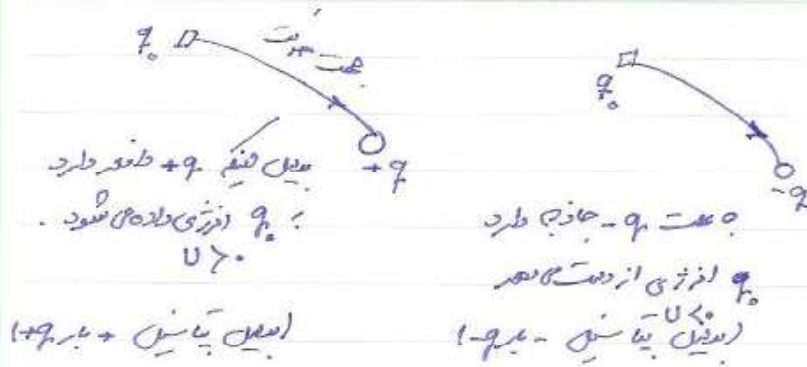 q₀
جهت حرکت
+q
بدلیل اینکه +q دافعه دارد
به q₀ انرژی داده می شود.
U > 0
(بدلیل پتانسیل + بار +q)
q₀
-q
به سمت -q جاذبه دارد
q₀ انرژی از دست می دهد
U < 0
(بدلیل پتانسیل - بار -q)